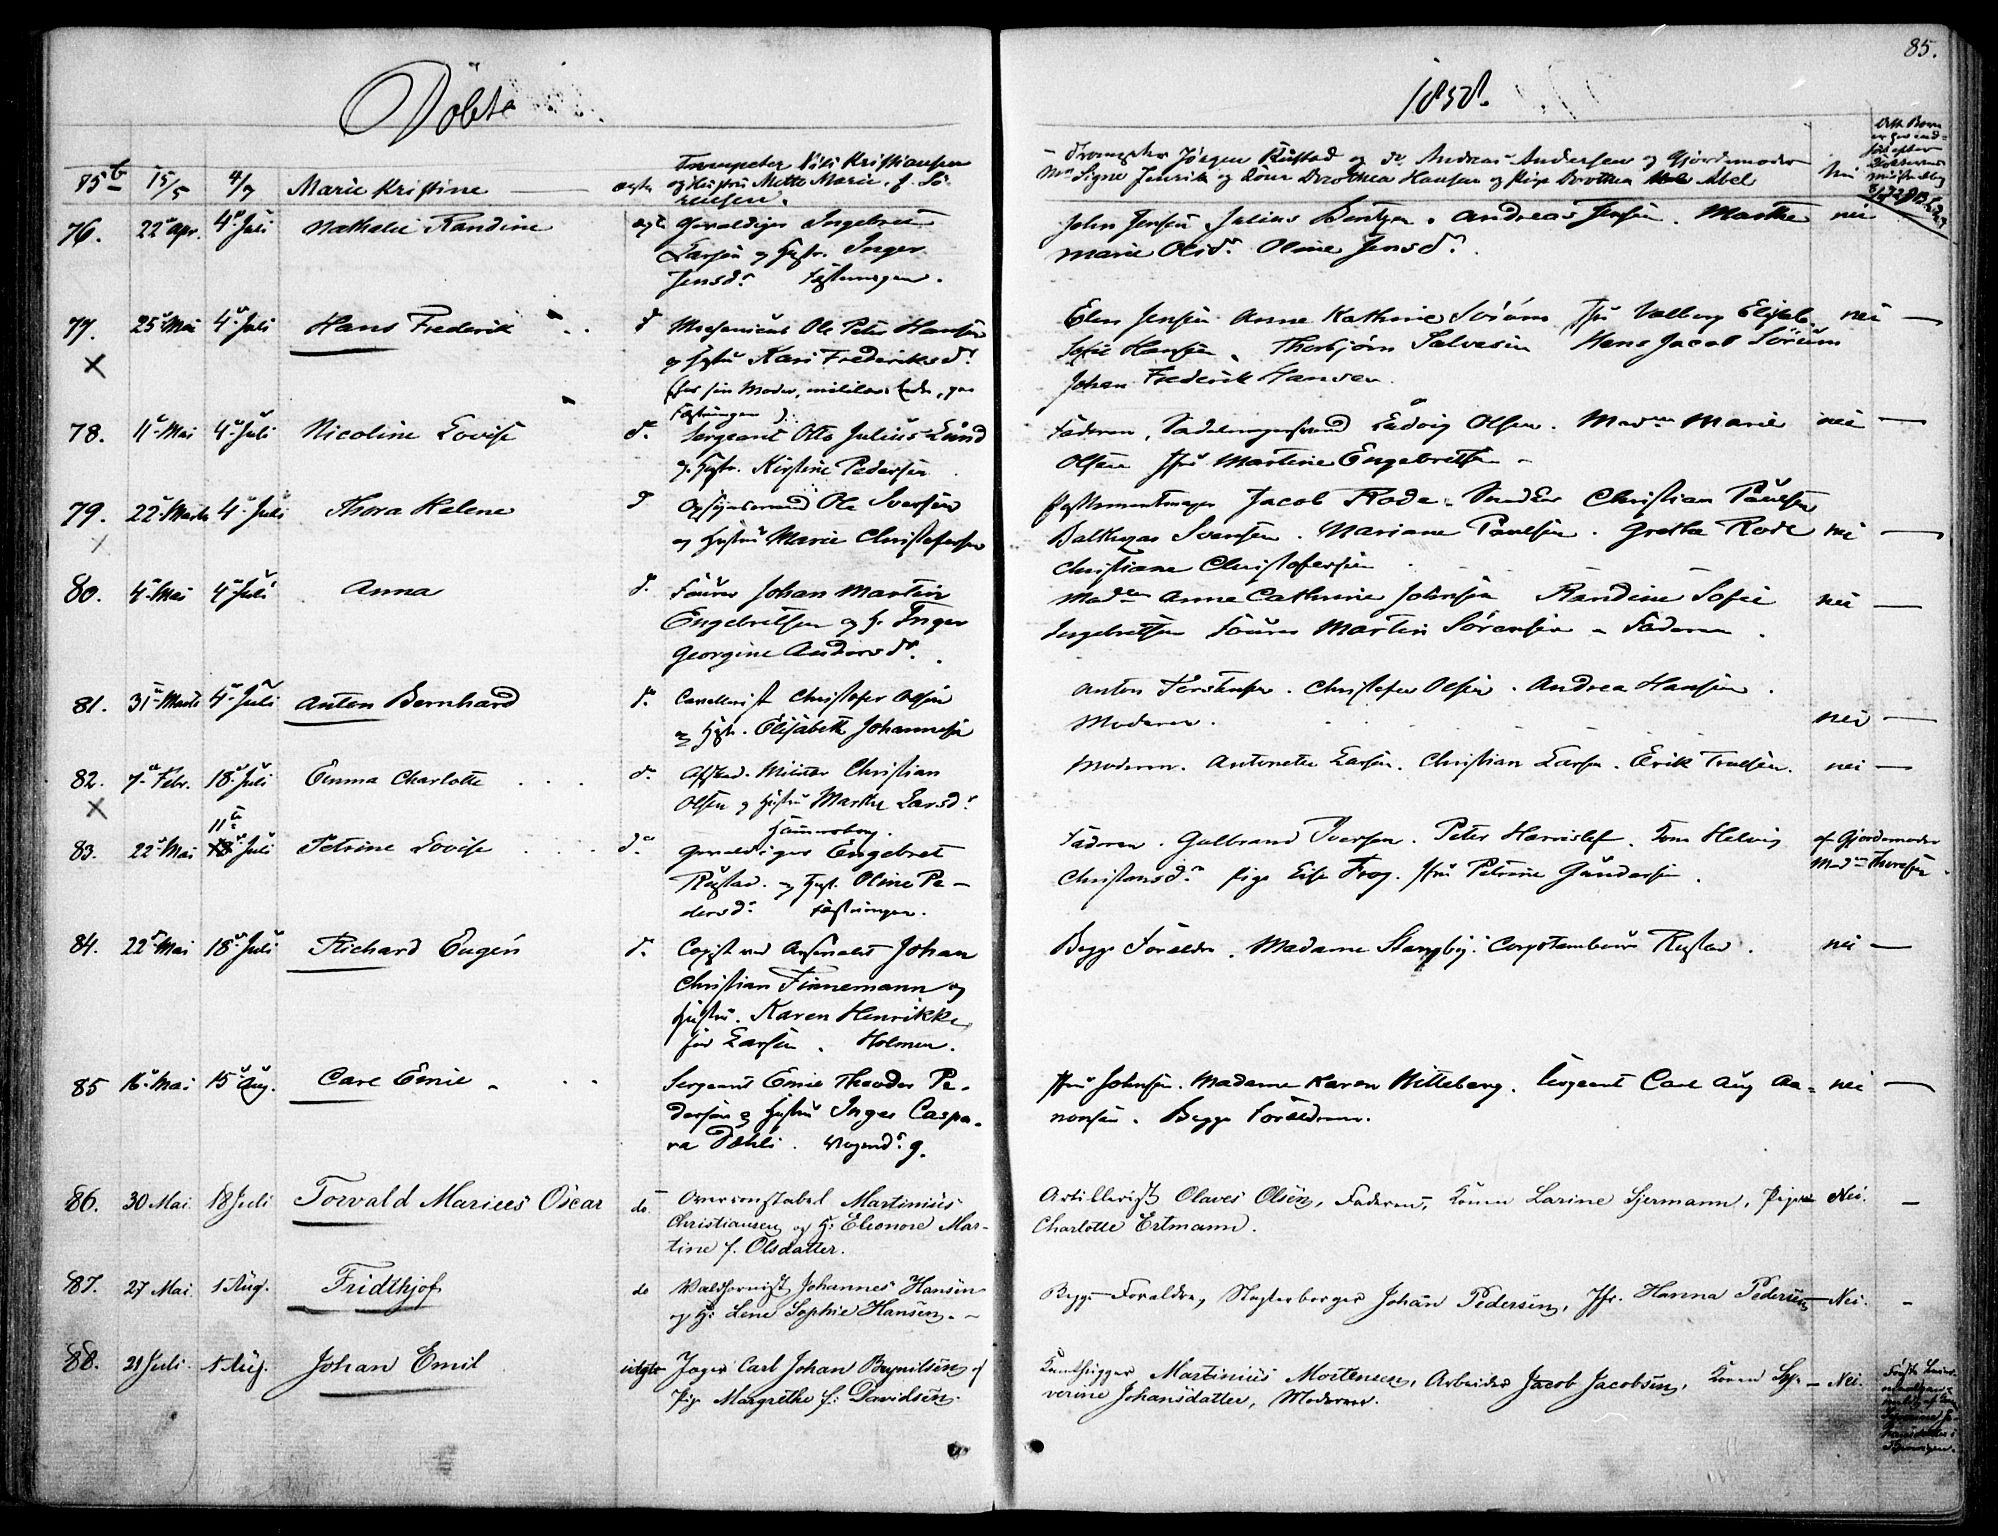 85.
Döbte
1858.
75b 15/5 4/7 Marie Kristine ægte Trompeter Nils Kristiansen
og Hustru Mette Marie, f. Sö-
rensen.
Trompeter Jörgen Rustad og do Andreas Andersen og Gjordemoder
Signe Jenrik og Kone Dorothea Hansen og Pige Dorothea Abel
76. 22 Apr. 4 Juli Nathalie Randine ægte Gevaldiger Ingebret
Larsen og Hustr. Inger
Jensdr. Fæstningen.
John Jensen Julius Bentzen. Andreas Jensen. Marthe nei
Marie Olsdr. Oline Jensdr.
77. 25 Mai 4 Juli Hans Frederik d Mechanicus Ole Peter Hansen
og Hustru Kari Frederiksdr.
Fæstningen).
Elen Jensen Anne Kathrine Sörum Jfru Valborg Elisab. nei —
Sofie Hansen. Thorbjörn Salvesen Hans Jacob Sörum
Johan Frederik Hansen.
78. 11 Mai 4 Juli Nicoline Lovise d. Sergeant Otto Julius Lund
og Hustr. Kirstine Pedersen
Faderen, Ludvig Olsen. Madm Marie nei —
Olsen Jfru Martine Engebretsen
79. 22 Marts 4 Juli Thora Helene d Opsynsmand Ole Svensen
og Hustru Marie Christofersen
Jacob Rode. Christian Paulsen
Balthazar Svensen. Mariane Paulsen. Grethe Rode nei —
Christiane Christofersen
80. 4 Mai 4 Juli Anna d. Fourer Johan Martin
Engebretsen og H. Inger
Georgine Andersdr.
Madm Anne Cathrine Johnsen Randine Sofie nei —
Ingebretsen Fourer Martin Sörensen Faderen.
81. 31 Marts 4 Juli Anton Bernhard d. Cavallerist Christofer Olsen
og Hustr. Elisabeth Johannesen
Anton Torstensen. Christofer Olsen. Andrea Hansen.
Moderen. nei —
82. 7 Febr. 18 Juli Emma Charlotte d. Afsked. Militær Christian
Olsen og Hustru Marthe Larsdr.
Hammersborg.
Moderen. Antonette Larsen. Christian Larsen. Erik Truelsen. nei —
83. 22 Mai 11 Juli Petrine Lovise d. Gevaldiger Engebret
Rustad. og Hust. Oline Pe-
dersdr. Fæstningen.
Faderen. Gulbrand Iversen. Peter Harrislef. Kone Helvig af Gjordemoder
Christensdr. Pige Elise Frog. Jfru Petrine Gundersen. Madm Thoresen.
84. 22 Mai 18 Juli Richard Eugén d. Copist ved Arsenalet Johan
Christian Finnemann og
Hustru. Karen Henrikke
föd Larsen. Holmen.
Begge Forældre. Madame Slangby. Corpstambour Rustad. nei —
85 16 Mai 15 Aug. Carl Emil Sergeant Emil Theodor Pe-
dersen og Hustru Inger Caspa-
ra Dæhli.
Jfru Johnsen. Madame Karen Witteberg. Sergeant Carl Aug Aa- nei —
nonsen. Begge Forældrene.
86. 30 Mai 18 Juli Torvald Marius Oscar do Overconstabel Martinius
Christiansen og H. Eleonore Mar-
tine f. Olsdatter.
Artillerist Olaves Olsen, Faderen, Konen Larine Sjermann, Pigen Nei. —
Charlotte Ertmann.
87. 27 Mai 1 Aug. Fridthjof do Valdhornist Johannes Hansen
og H. Lene Sophie Hansen.
Begge Forældre, Slagterborger Johan Pedersen, Jfr. Hanna Pedersen Nei. —
88. 21 Juli. 1 Aug. Johan Emil uægte Jæger Carl Johan Brynilsen og
Pige Margrethe f. Davidsen.
Martinius Mortensen, Arbeider Jacob Jacobsen, Konen Sy- Nei.
verine Johansdatter, Moderen.